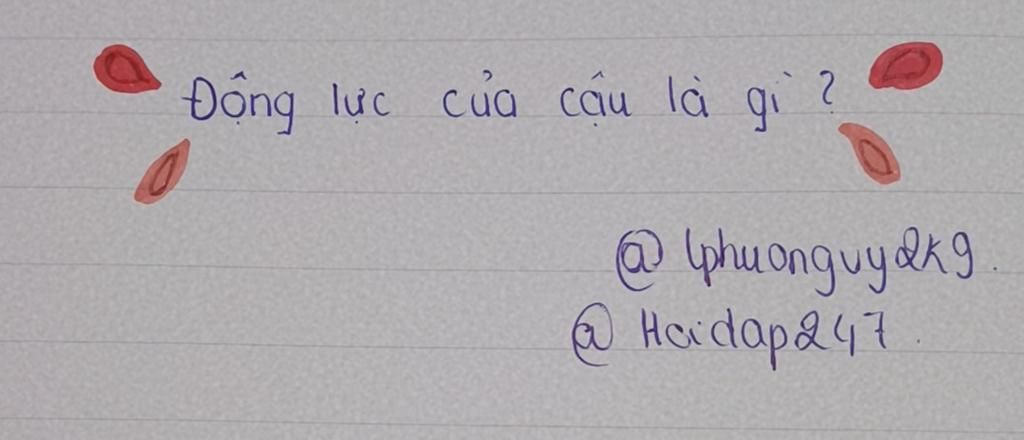 Động lực của cậu là gì?
@ lphuonguy2k9.
@ Hoidap247.